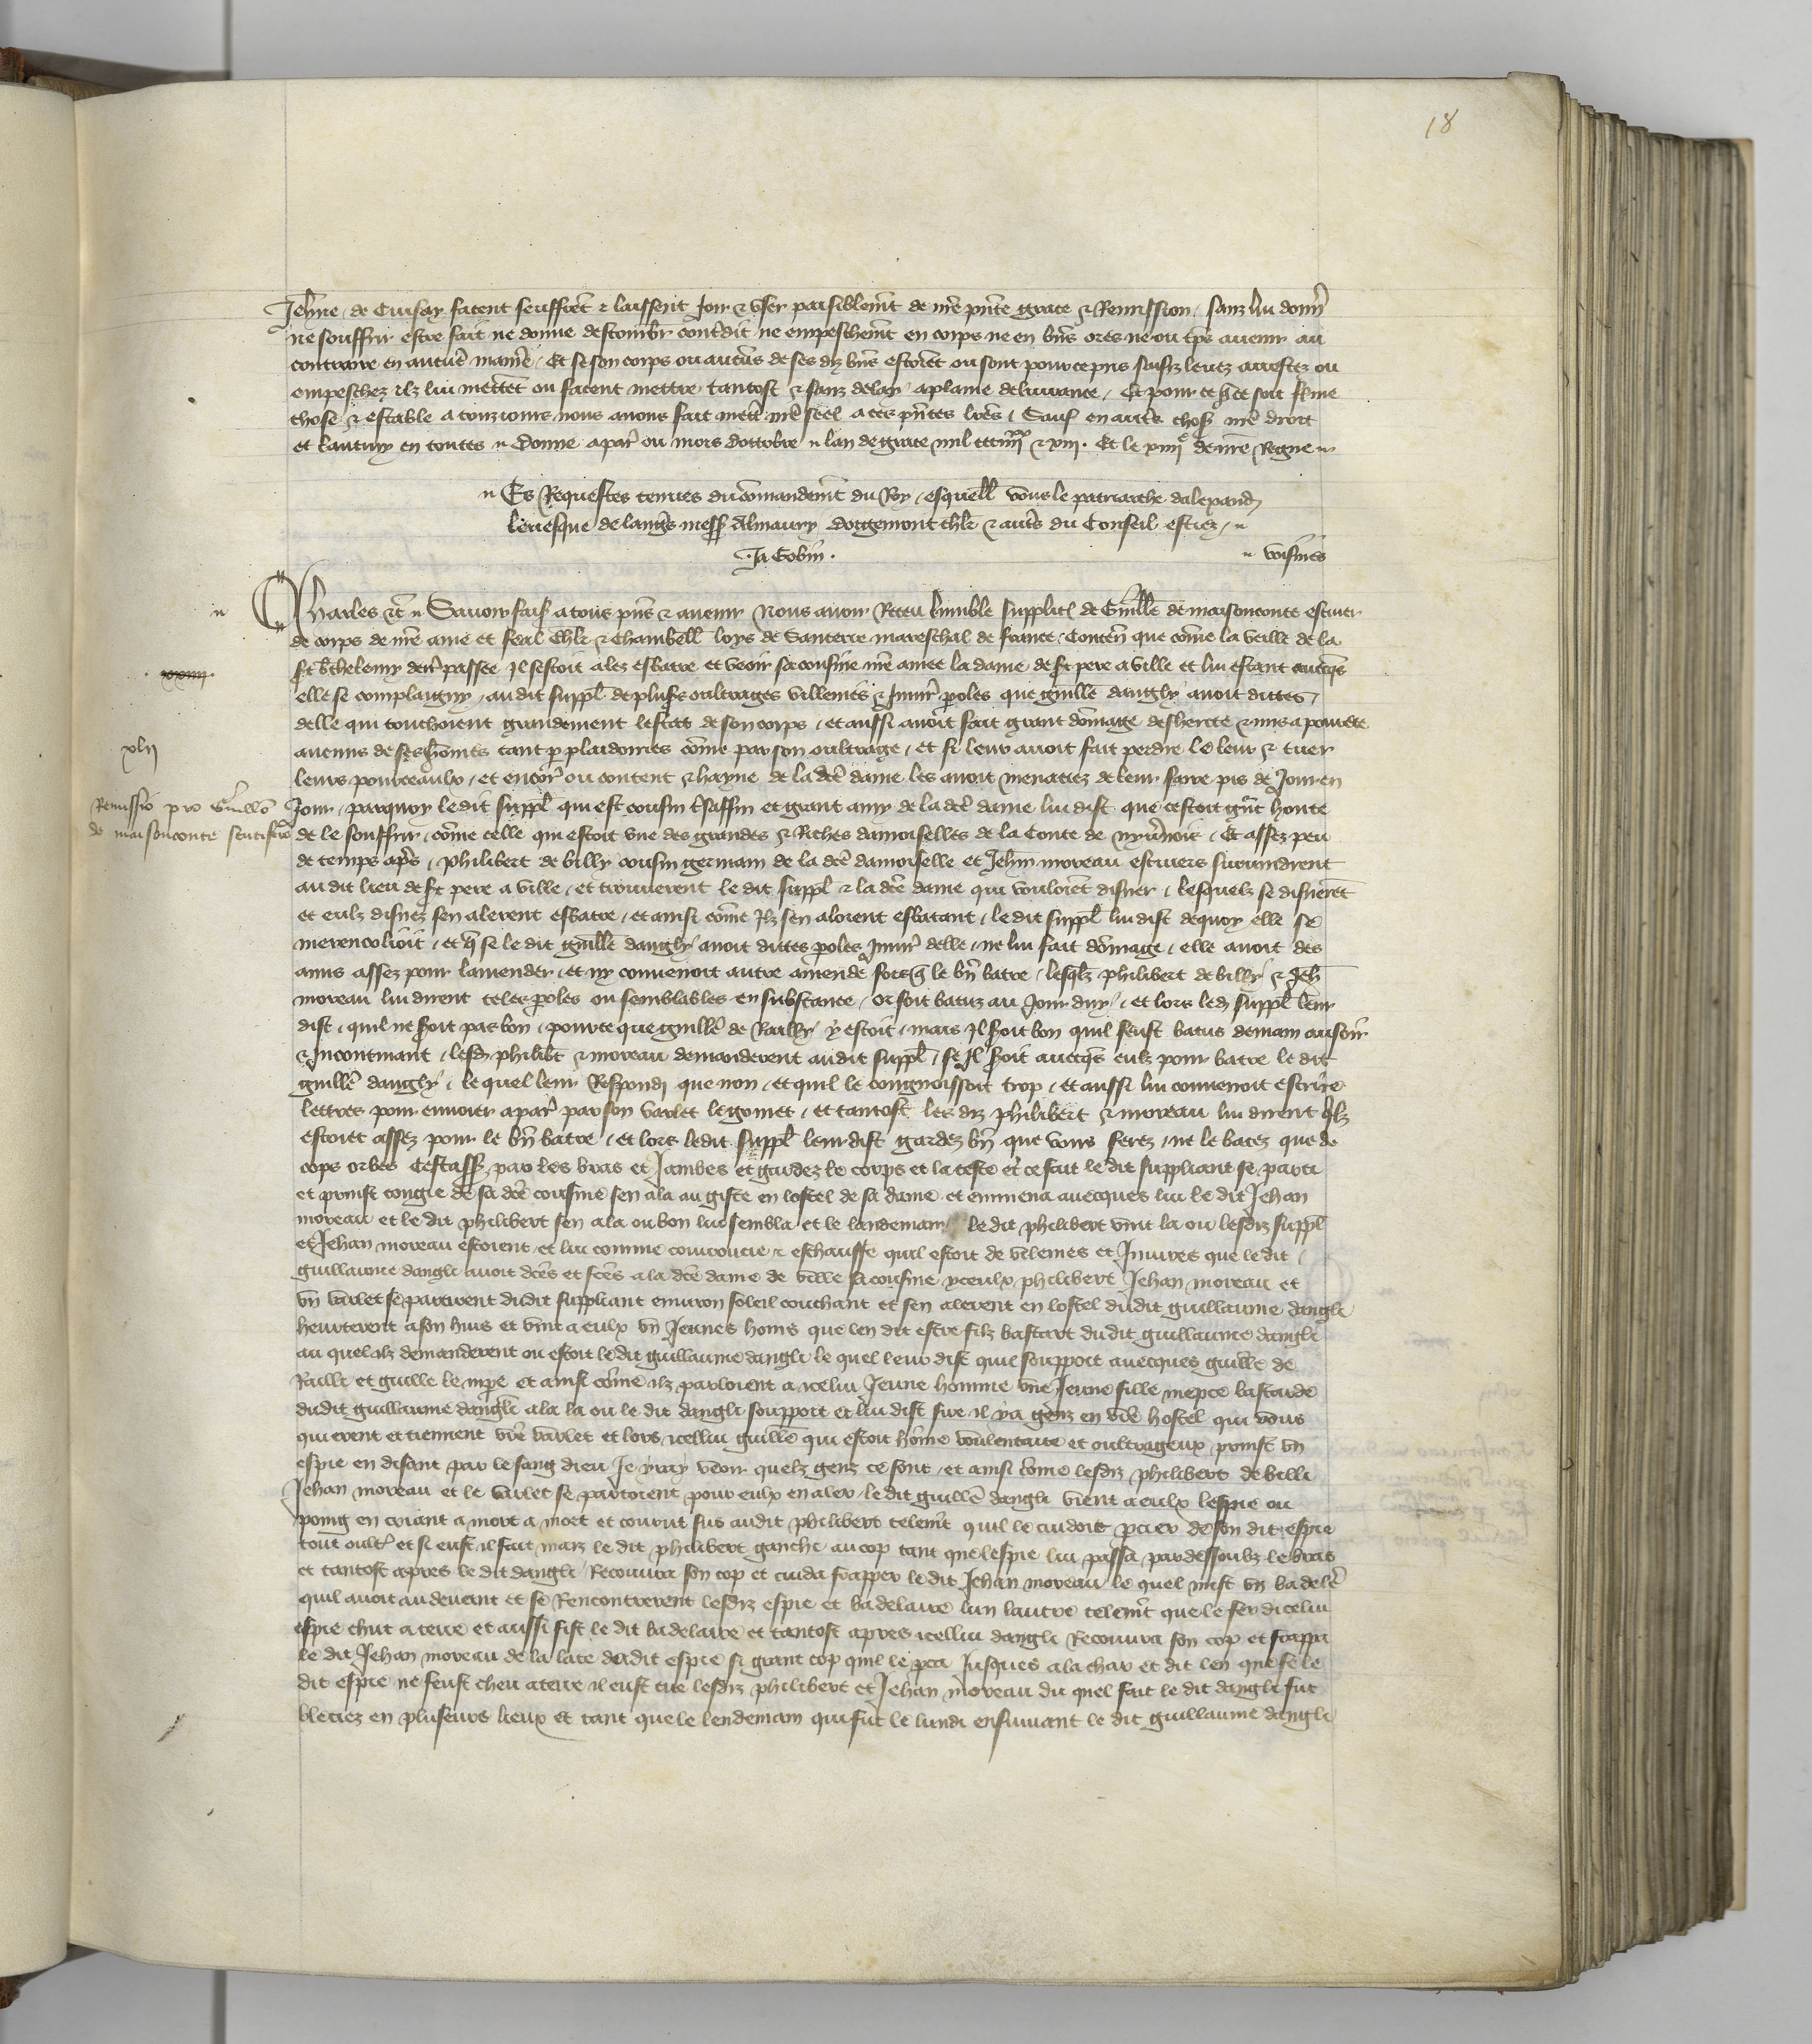 18
Jehñne de Cuisay facent seuffrẽt & laissent Joir & user paisiblemẽt de nr̃e pñte grace & Remission sanz lui donñ
ne souffrir estre fait ne donne destourbr̃ contredit ne empeschemẽt en corps ne en biẽs ores ne ou tẽps avenir au
contraire en aucũe maniẽ Et se son corps ou aucũs de ses diz biẽs estoiẽt ou sont pour ce pris saisiz levez arrestez ou
empeschez ilz lui mettẽt ou facent mettre tantost & sanz delay a plaine delivrance Et pour ce q̃ ce soit ferme
chose & estable a touzjours nous avons fait mettr̃ nr̃e seel a ces pñtes lr̃es Sauf en autrẽs choses nr̃e droit
et lautruy en toutes Donne a par̃ ou mois doctobre lan de grace mil ccc iiiixx & xiii. Et le xiiiie de nr̃e Regne
Es Requestes tenues du cõmandemẽt du Roy esquell̃ vous le patriarche dalexand̃
levesque de langr̃es mess̃ Almaury dorgemont chl̃r & autr̃s du Conseil estiez
Ja Gobin. voisines
Charles &c̃ Savoir fais̃ a tous pñs & avenir Nous avoir Receu humble supplic̃ de Guill̃e de maisonconte escuier
de corps de nr̃e ame et feal Chl̃r & Chambell̃ loys de Santerre mareschal de france Contẽn que cõme la veille de la
st bẽthelemy dern̄ passee Il sestoit alez esbatre et veoir sa cousine nr̃e amee la dame de st pere a ville et lui estant avecq̃s
xxiiii
elle se complaigny audit suppl̃ de plus̃rs oultrages villenies & Iniur̃ p̃oles que guill̃e danghy avoit dittes
delle qui touchoient grandement lestat de son corps et aussi avoit fait grant dõmage desherite & mis a povrete
xlii
aucuns de ses hõmes tant p̃ plaidoiries cõme par son oultrage et si leur avoit fait perdre le leur & tuer
leurs pourceaulx et encor̃ ou content & hayne de la dc̃e dame les avoit menaciez de leur faire pis de Jour en
Remissio pro Guill̃o
de maisonconte scutifero
Jour parquoy ledit suppl̃ qui est cousin & affin et grant amy de la dc̃e dame lui dist que cestoit gr̃nt honte
de le souffrir cõme celle qui estoit une des grandes & Riches damoiselles de la Conte de nyvernois Et assez peu
de temps apr̃s Philibert de billy cousin germain de la dc̃e damoiselle et Jehan moreau escuiers survindrent
audit lieu de st pere a ville et trouverent le dit suppl̃ & la dc̃e dame qui vouloiẽt disner lesquelz se disnerẽt
et eulz disnez sen alerent esbatre et ainsi cõme Ilz sen aloient esbatant le dit suppl̃ lui dist de quoy elle se
merencolioit et q̃ se le dit guill̃e danghy avoit dittes p̃oles Iniur̃ delle ne lui fait dõmage elle avoit des
amis assez pour lamender et ny convenoit autre amende fors q̃ le biẽ batre lesq̃lz philibert de billy & Jeh̃
moreau lui dirent teles p̃oles ou semblables en substance or soit batuz au Jour duy et lors led̃ suppl̃ leur
dist quil ne seroit pas bon pource que guill̃e de Railly y estoit mais Il seroit bon quil feust batus demain au soir
& Incontinant lesd̃ philib̃t & moreau demanderent audit suppl̃ se Il seroit avecq̃s eulz pour batre le dit
guill̃e danghy le quel leur Respondi que non et quil le congnoissoit trop et aussi lui convenoit escrire
lettres pour envoier a par̃ par son varlet legomet et tantost les diz philibert & moreau lui dirent q̃lz
estoiẽt assez pour le biẽ batre et lors ledit suppl̃ leur dist gardez biẽ que vous ferez ne le batez que de
cops orbes Cestass̃ par les bras et Jambes et gardez le corps et la teste et ce fait le dit suppliant se parti
et prinst congie de sa dc̃e cousine sen ala au giste en lostel de sa dame et emmena avecques lui le dit Jehan
moreau et le dit philibert sen ala ou bon lui sembla et le landemain le dit philibert vint la ou lesdiz suppl̃
et Jehan moreau estoient et lui comme courroucie & eschauffe quil estoit de vilenies et Iniures que le dit
guillaume dangli avoit dc̃es et fc̃es a la dc̃e dame de ville sa cousine yceulx philibert Jehan moreau et
un varlet se partirent dudit suppliant environ soleil couchant et sen alerent en lostel dudit guillaume dangli
heurterent a son huis et vint a eulx un Jeunes homs que len dit estre filz bastart dudit guillaume dangli
au quel ilz demanderent ou estoit ledit guillaume dangli le quel leur dist quil souppoit avecques guill̃e de
Railli et guill̃e le mp̃e et ainsi cõme ilz parloient a icelui Jeune homme une Jeune fille niepce bastarde
dudit guillaume dangli ala la ou le dit dangli souppoit et lui dist sire il y a gẽnz en vr̃e hostel qui vous
quierent et tiennent vr̃e varlet et lors icellui guill̃e qui estoit hõme voulentaire et oultrageux prinst un
espie en disant par le sang dieu Je yray veoir quelz genz ce sont et ainsi cõme lesdiz philibert de billi
Jehan moreau et le varlet se partoient pour eulx en aler le dit guill̃e dangli vient a eulx lespie ou
poing en criant a mort a mort et courut sus audit philibert telemẽt quil le cuidoit p̃cier de son dit espie
tout oultr̃ et si eust il fait mais le dit philibert ganchi au cop tant que lespie lui passa par dessoubz le bras
et tantost apres le dit dangli Recouvra son cop et cuida frapper ledit Jehan moreau le quel mist un badelẽr
quil avoit au devant et se Rencontrerent lesdiz espie et badelaire lun lautre telemẽt que le fer dicelui
espie chut a terre et aussi fist le dit badelaire et tantost apres icellui dangli Recouvra son cop et frappa
le dit Jehan moreau de la late dudit espie si grant cop quil le p̃ca Jusques a la char et dit len que se le
dit espie ne feust cheu a terre il eust tue lesdiz philibert et Jehan moreau du quel fait le dit dangli fut
bleciez en pluseurs lieux et tant que le lendemain qui fut le lundi ensuivant le dit guillaume dangli